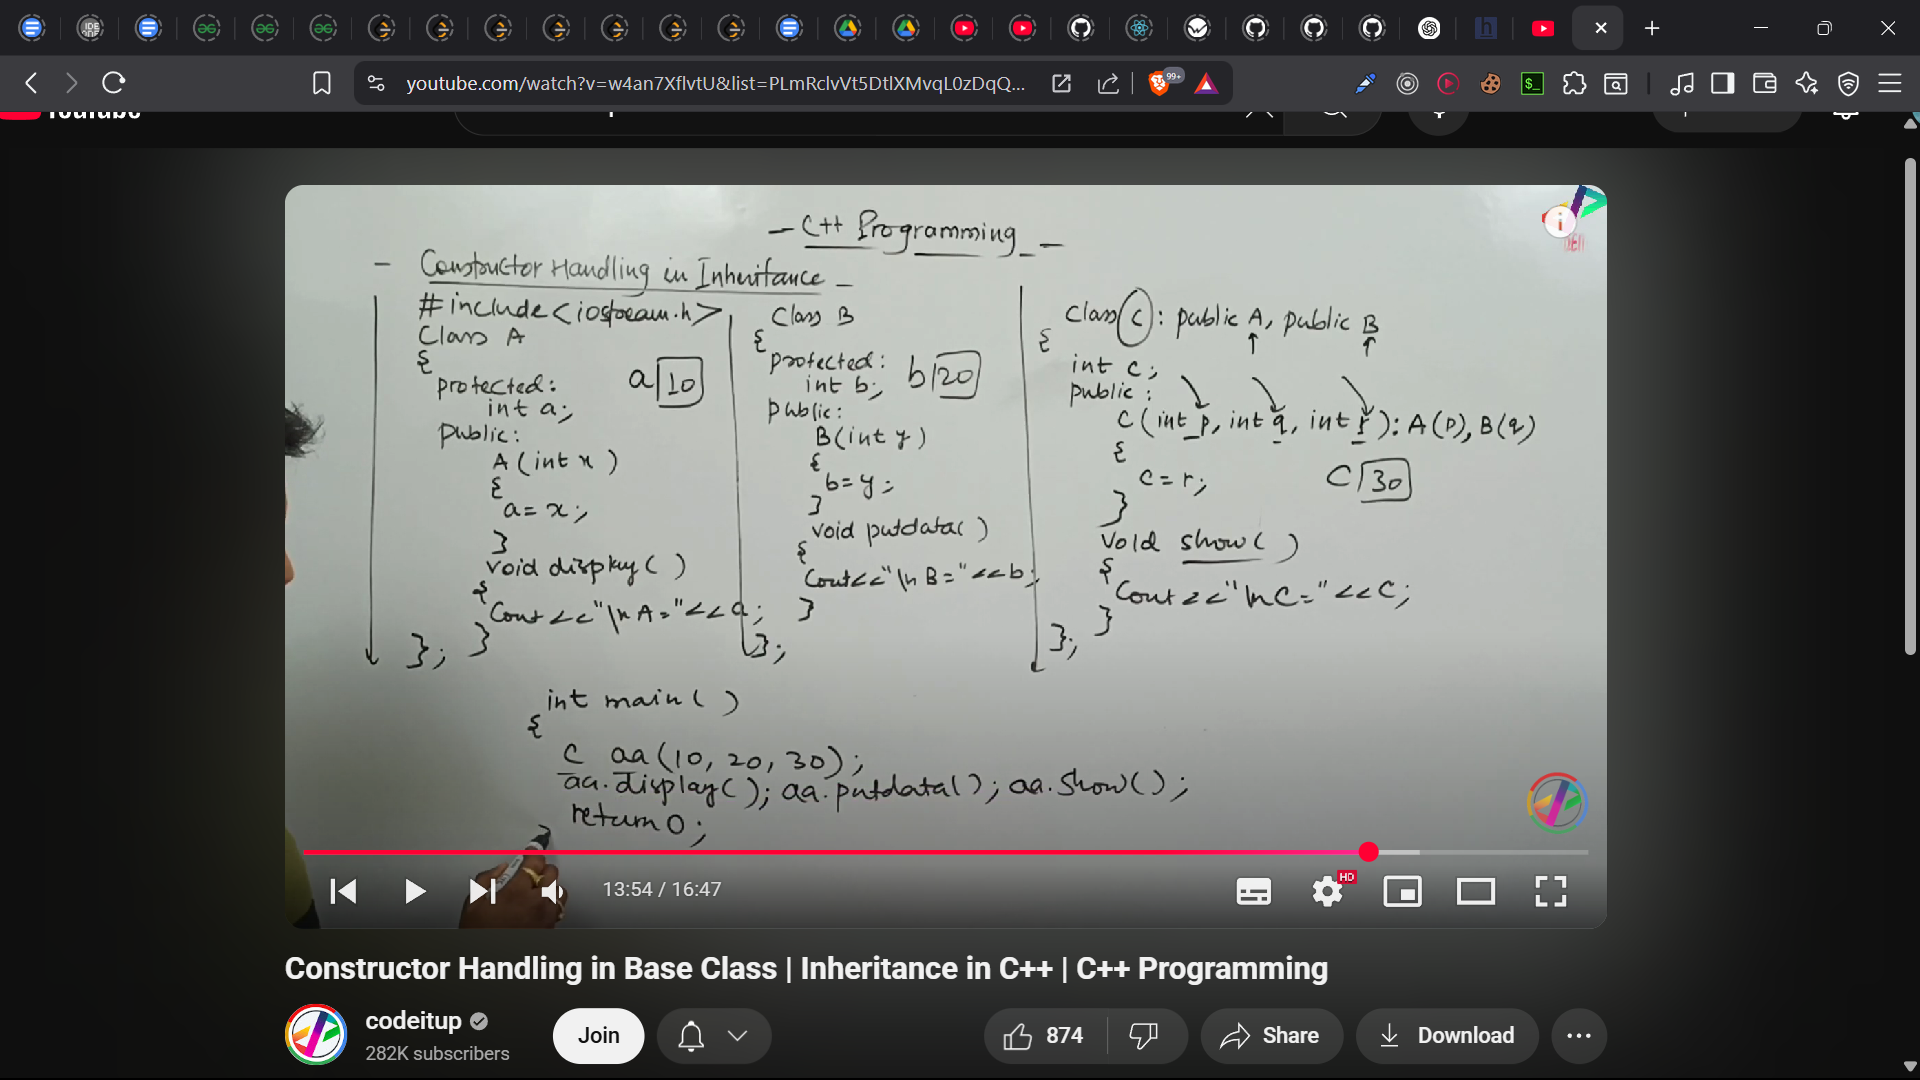 youtube.com/watch?v=w4an7XflvtU&list=PLmRclvVt5DtlXMvqL0zDqQ...
99+
YouTube
- C++ Programming -
- Constructor Handling in Inheritance -
#include<iostream.h>
Class A
{
protected:
int a;
public:
A(int x)
{
a=x;
}
void display( )
{
Cout<<"\n A="<<a;
}
};
a 10
Class B
{
protected:
int b;
public:
B(int y)
{
b=y;
}
void putdata( )
{
Cout<<"\n B="<<b;
}
};
b 20
Class C : public A, public B
{
int c;
public:
C(int p, int q, int r): A(p), B(q)
{
c=r;
}
void show( )
{
Cout<<"\nC="<<C;
}
};
C 30
int main( )
{
C aa(10, 20, 30);
aa.display(); aa.putdata(); aa.show();
return 0;
13:54 / 16:47
HD
Constructor Handling in Base Class | Inheritance in C++ | C++ Programming
codeitup
282K subscribers
Join
874
Share
Download